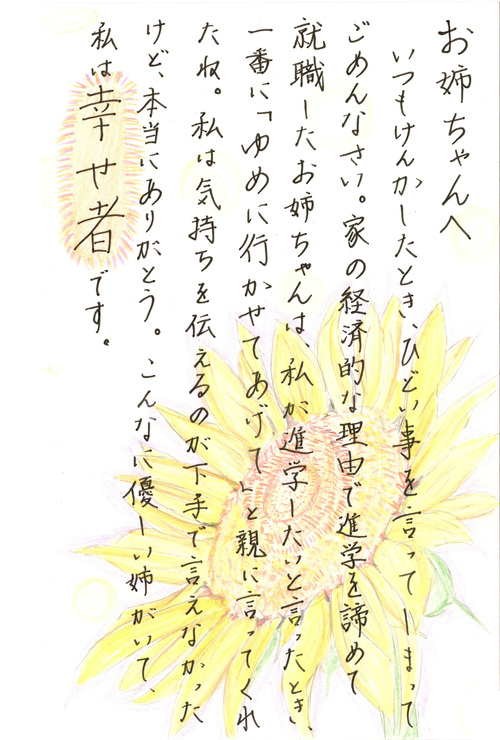 お姉ちゃんへ
いつもけんかしたとき、ひどい事を言ってしまって
ごめんなさい。家の経済的な理由で進学を諦めて
就職したお姉ちゃんは、私が進学したいと言ったとき、
一番に「ゆめに行かせてあげて」と親に言ってくれ
たね。私は気持ちを伝えるのが下手で言えなかった
けど、本当にありがとう。こんなに優しい姉がいて、
私は幸せ者です。